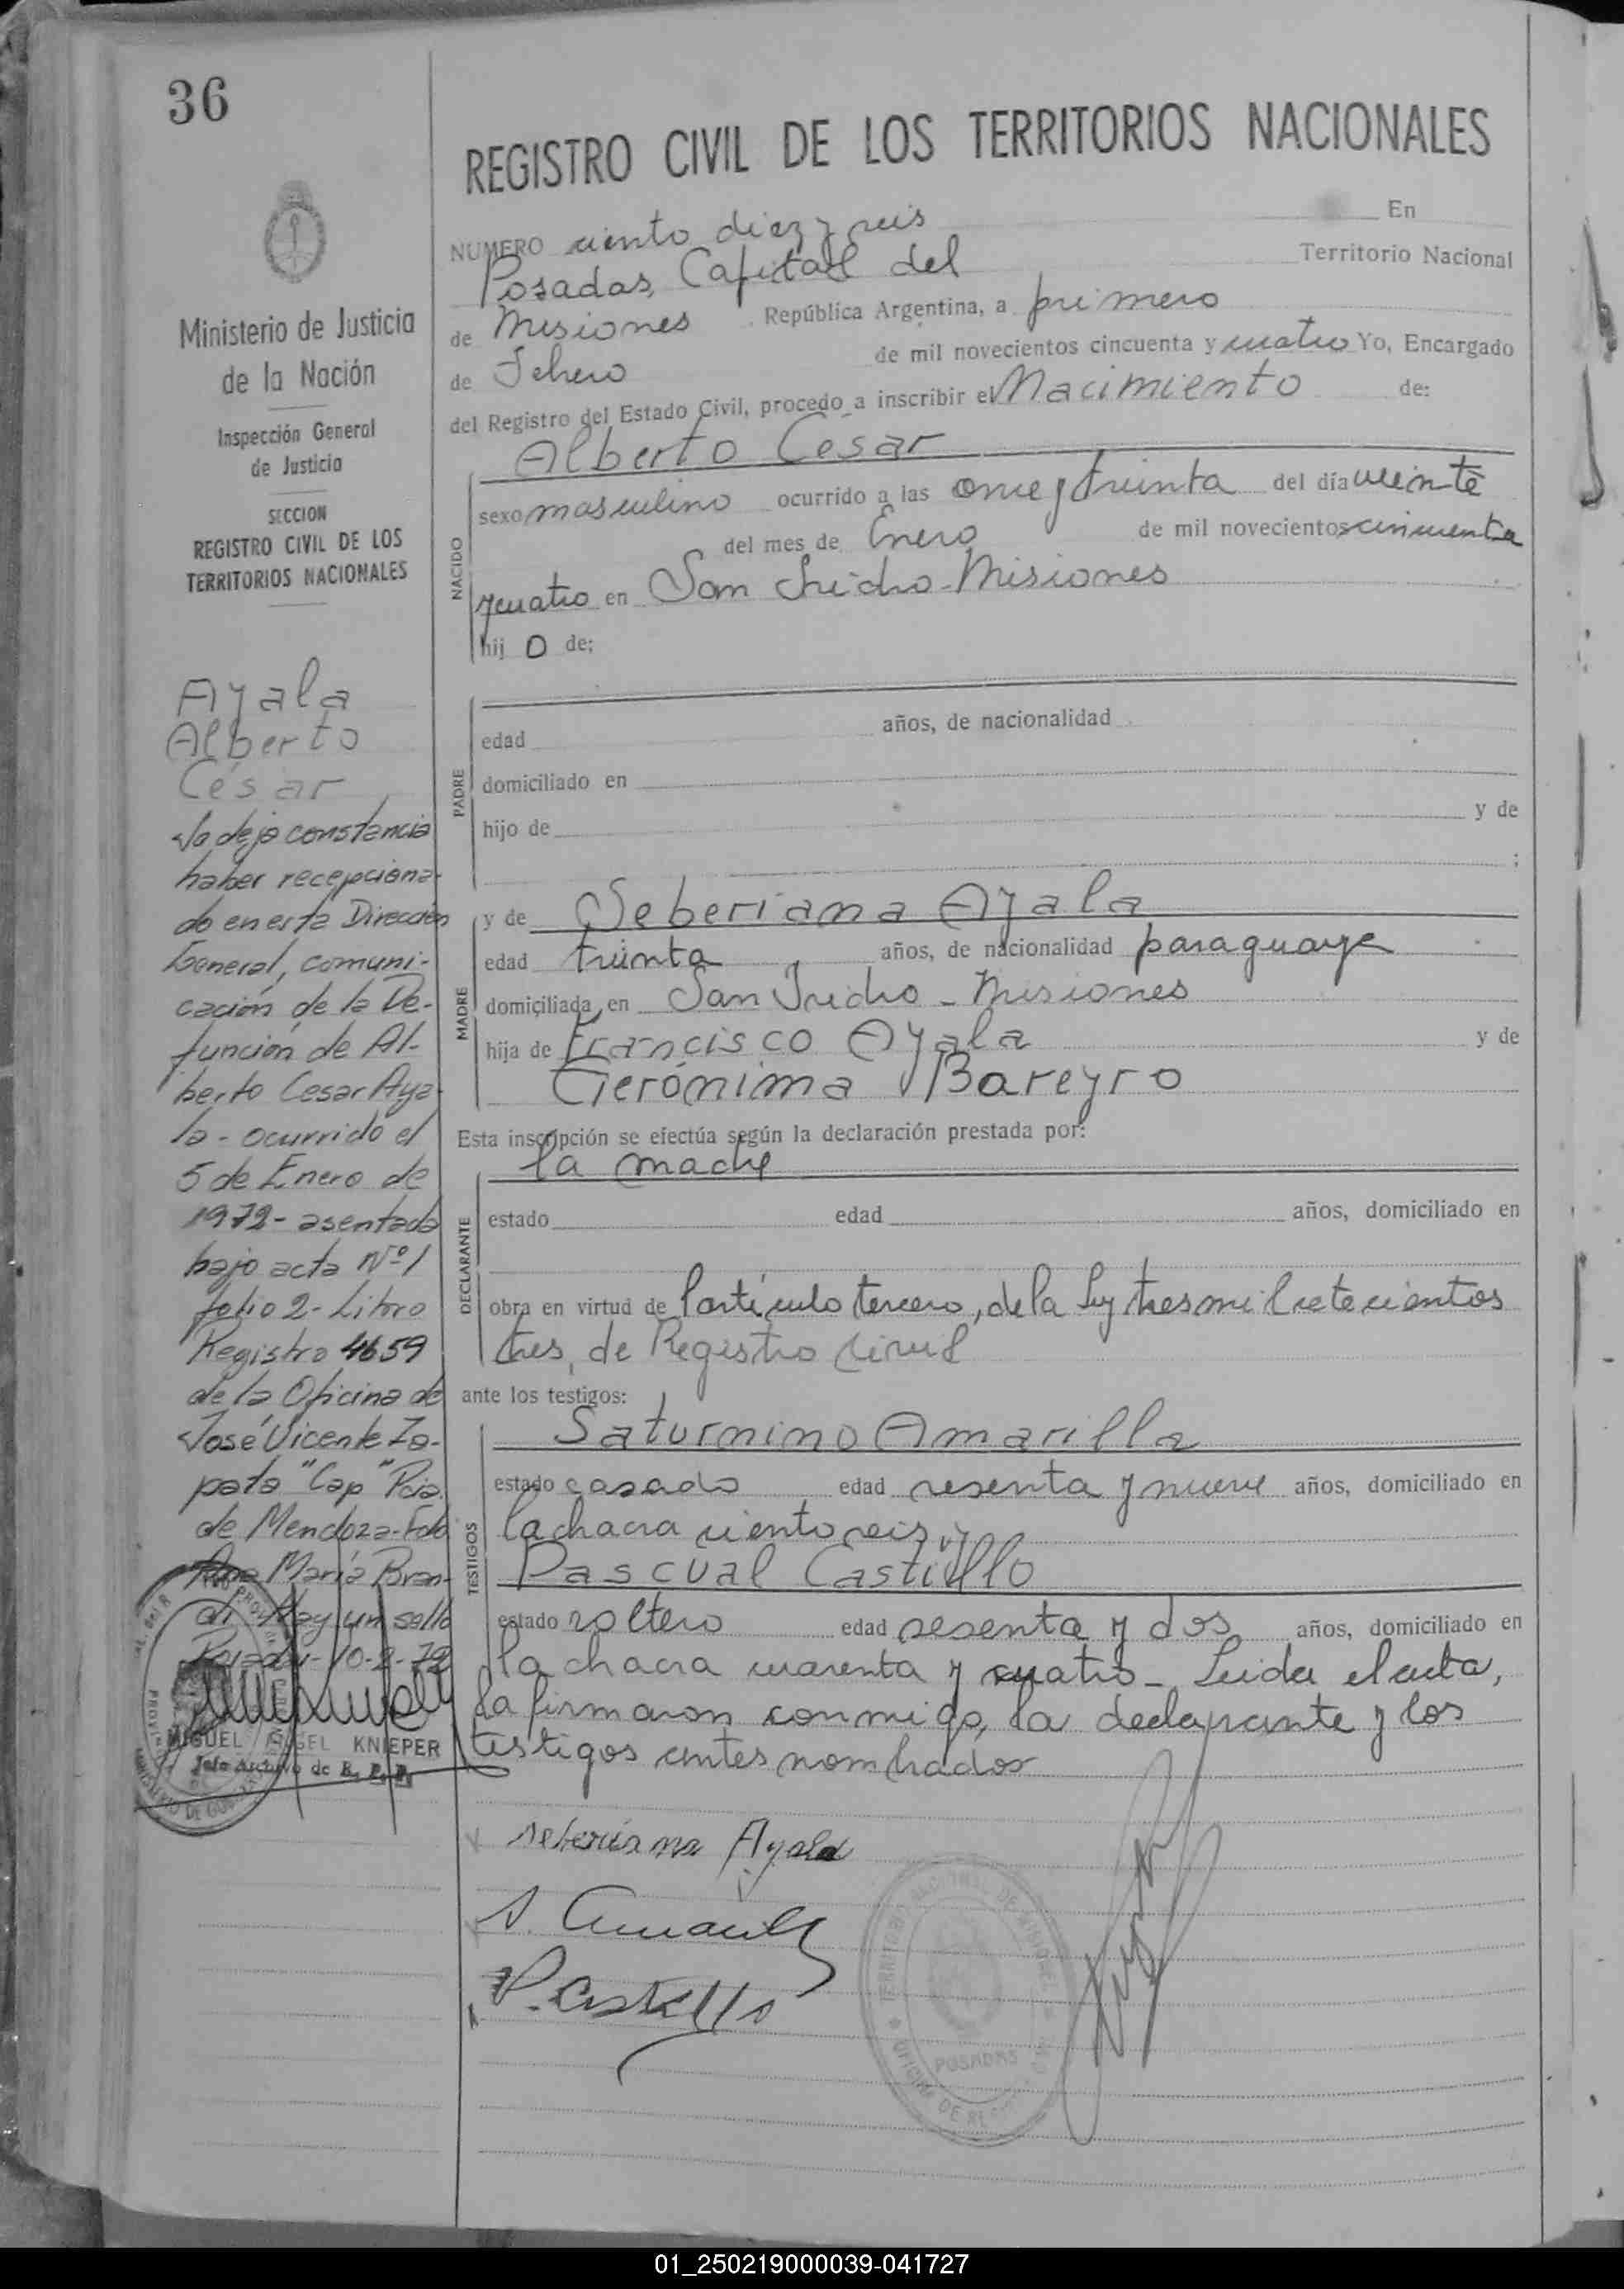 36
REGISTRO CIVIL DE LOS TERRITORIOS NACIONALES
NUMERO ciento diez y seis En
Posadas, Capital del Territorio Nacional
de Misiones República Argentina, a primero
de Febrero de mil novecientos cincuenta y cuatro Yo, Encargado
del Registro del Estado Civil, procedo a inscribir el Nacimiento de:
Alberto Cesar
NACIDO
sexo masculino ocurrido a las once y treinta del día veinte
del mes de Enero de mil novecientos cincuenta
y cuatro en San Isidro-Misiones
hij o de;
PADRE
edad años, de nacionalidad
domiciliado en
hijo de y de
;
MADRE
y de Seberiana Ayala
edad treinta años, de nacionalidad paraguaya
domiciliada en San Isidro - Misiones
hija de Francisco Ayala y de
Gerónima Bareyro
Esta inscripción se efectúa según la declaración prestada por:
la madre
DECLARANTE
estado edad años, domiciliado en
obra en virtud de l'artículo tercero, de la ley tres mil setecientos
tres, de Registro Civil
ante los testigos:
TESTIGOS
Saturnino Amarilla
estado casado edad sesenta y nueve años, domiciliado en
la chacra ciento seis, y
Pascual Castillo
estado soltero edad sesenta y dos años, domiciliado en
la chacra cuarenta y cuatro - Leida el acta,
la firmaron conmigo, la declarante y los
testigos antes nombrados
seberiana Ayala
S. Amarilla
P. Castillo
TERRITORIO NACIONAL DE MISIONES
POSADAS
Ministerio de Justicia
de la Nación
Inspección General
de Justicia
SECCION
REGISTRO CIVIL DE LOS
TERRITORIOS NACIONALES
Ayala
Alberto
César
Se deja constancia
haber recepciona-
do en esta Dirección
General, comuni-
cación de la De-
función de Al-
berto Cesar Aya-
la - ocurrido el
5 de Enero de
1972 - asentada
bajo acta Nº 1
folio 2 - Libro
Registro 4659
de la Oficina de
José Vicente Za-
pata "Cap" Pcia.
de Mendoza - Fdo
Ana María Bran-
di. Hay un sello
Posadas - 10-2-72
MIGUEL ANGEL KNIEPER
Jefe Archivo de R. P. P.
01_250219000039-041727